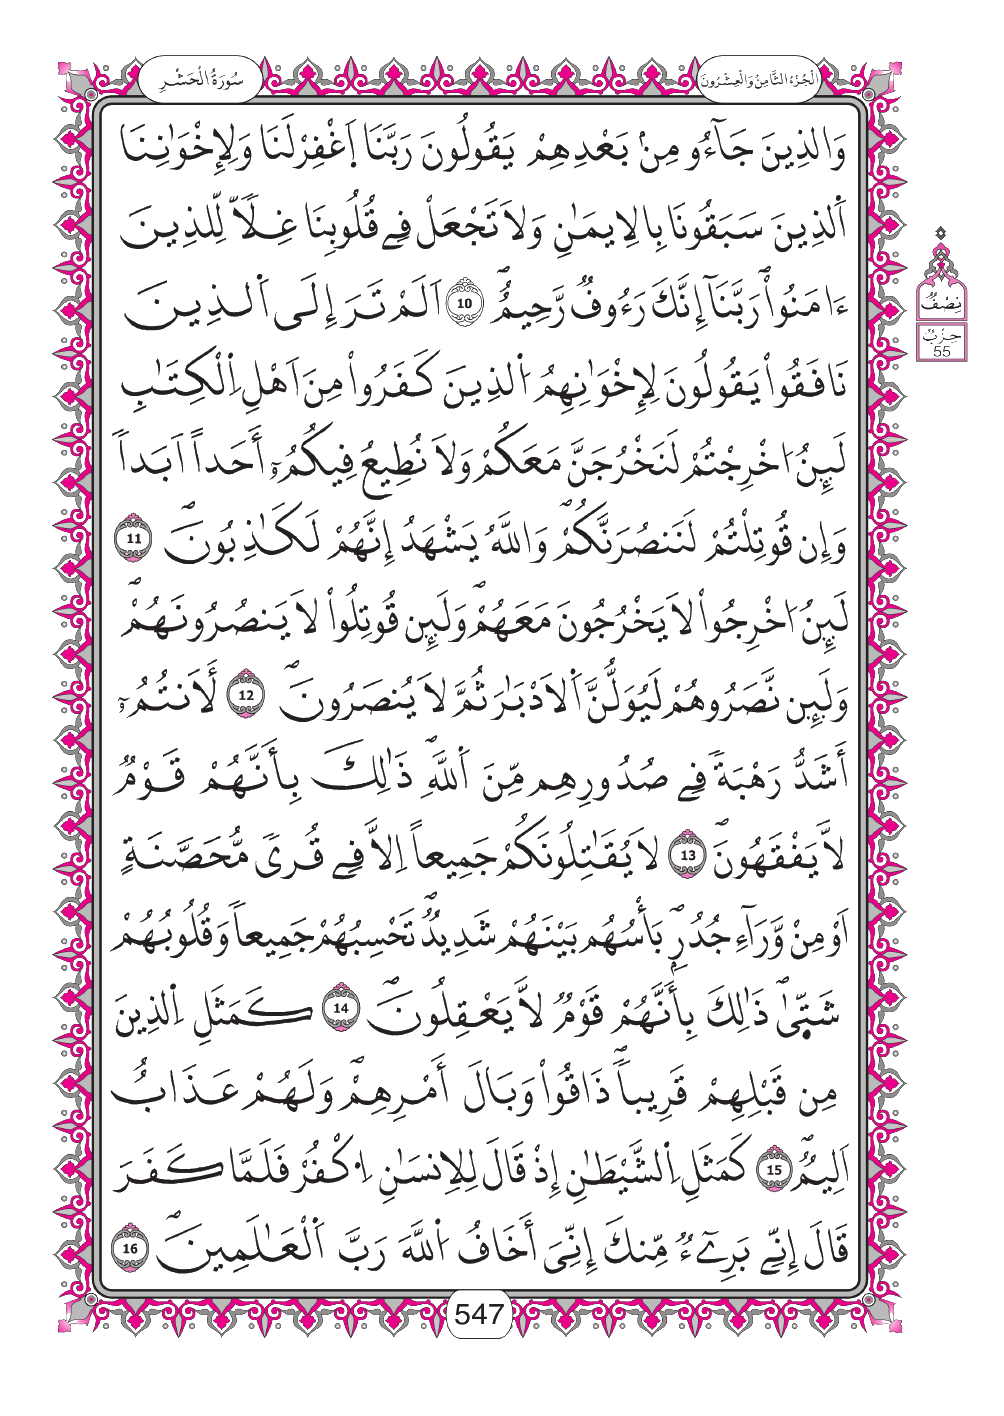 الْجُزْءُ الثَّامِنُ وَالْعِشْرُونَ
سُورَةُ الْحَشْرِ
وَالذِينَ جَآءُو مِنۢ بَعْدِهِمْ يَقُولُونَ رَبَّنَا اَ۪غْفِرْ لَنَا وَلِإِخْوَٰنِنَا
اَ۬لذِينَ سَبَقُونَا بِالِايمَٰنِ وَلَا تَجْعَلْ فِے قُلُوبِنَا غِلّاٗ لِّلذِينَ
ءَامَنُواْۖ رَبَّنَآ إِنَّكَ رَءُوفٞ رَّحِيمٌۖ 10 اَلَمْ تَرَ إِلَى اَ۬لذِينَ
نَافَقُواْ يَقُولُونَ لِإِخْوَٰنِهِمُ اُ۬لذِينَ كَفَرُواْ مِنَ اَهْلِ اِ۬لْكِتَٰبِ
لَئِنُ ا۟خْرِجْتُمْ لَنَخْرُجَنَّ مَعَكُمْ وَلَا نُطِيعُ فِيكُمُۥٓ أَحَداً اَبَداٗ
وَإِن قُوتِلْتُمْ لَنَنصُرَنَّكُمْۖ وَاللَّهُ يَشْهَدُ إِنَّهُمْ لَكَٰذِبُونَۖ 11
لَئِنُ ا۟خْرِجُواْ لَا يَخْرُجُونَ مَعَهُمْۖ وَلَئِن قُوتِلُواْ لَا يَنصُرُونَهُمْۖ
وَلَئِن نَّصَرُوهُمْ لَيُوَلُّنَّ اَ۬لَادْبَٰرَ ثُمَّ لَا يُنصَرُونَۖ 12 لَأَنتُمُۥٓ
أَشَدُّ رَهْبَةٗ فِے صُدُورِهِم مِّنَ اَ۬للَّهِۖ ذَٰلِكَ بِأَنَّهُمْ قَوْمٞ
لَّا يَفْقَهُونَۖ 13 لَا يُقَٰتِلُونَكُمْ جَمِيعاً اِلَّا فِے قُرىٗ مُّحَصَّنَةٍ
اَوْ مِنْ وَّرَآءِ جُدُرِۢۖ بَأْسُهُم بَيْنَهُمْ شَدِيدٞۖ تَحْسِبُهُمْ جَمِيعاٗ وَقُلُوبُهُمْ
شَتّ۪ىٰۖ ذَٰلِكَ بِأَنَّهُمْ قَوْمٞ لَّا يَعْقِلُونَۖ 14 كَمَثَلِ اِ۬لذِينَ
مِن قَبْلِهِمْ قَرِيباٗۖ ذَاقُواْ وَبَالَ أَمْرِهِمْۖ وَلَهُمْ عَذَابٌ
اَلِيمٞۖ 15 كَمَثَلِ اِ۬لشَّيْطَٰنِ إِذْ قَالَ لِلِانسَٰنِ اِ۟كْفُرْ فَلَمَّا كَفَرَ
قَالَ إِنِّے بَرِےٓءٞ مِّنكَ إِنِّيَ أَخَافُ اُ۬للَّهَ رَبَّ اَ۬لْعَٰلَمِينَۖ 16
نِصْفُ
حِزْبٌ
55
547